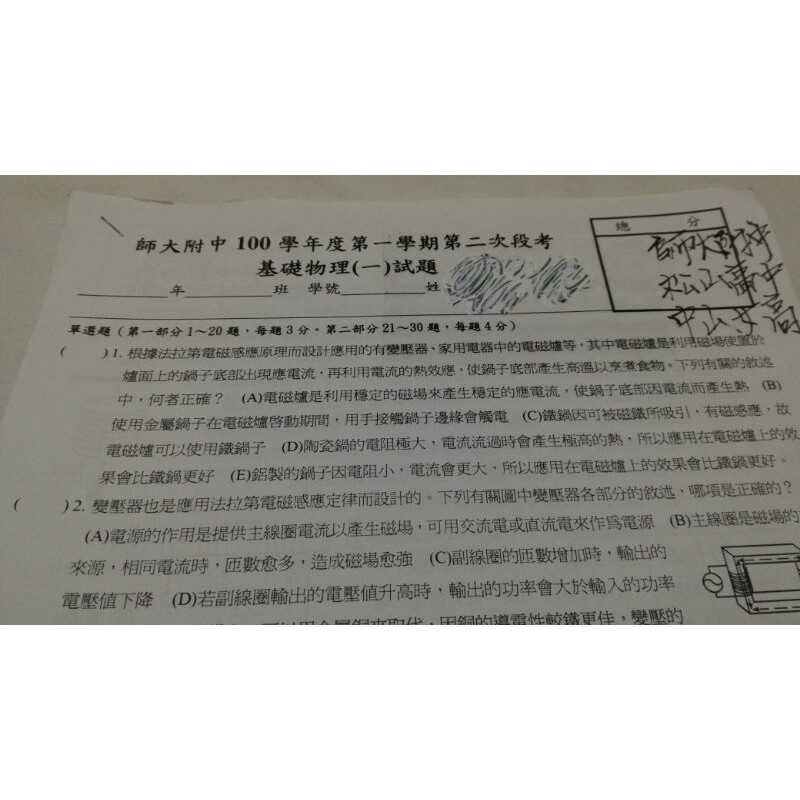 師大附中 100 學年度第一學期第二次段考
總 分
師大附中
松山高中
中山女高
基礎物理(一)試題
年 班 學號 姓
單選題(第一部分 1～20 題,每題 3 分。第二部分 21～30 題,每題 4 分)
( )1. 根據法拉第電磁感應原理而設計應用的有變壓器、家用電器中的電磁爐等,其中電磁爐是利用磁場使置於
爐面上的鍋子底部出現應電流,再利用電流的熱效應,使鍋子底部產生高溫以烹煮食物。下列有關的敘述
中,何者正確? (A)電磁爐是利用穩定的磁場來產生穩定的應電流,使鍋子底部因電流而產生熱 (B)
使用金屬鍋子在電磁爐啓動期間,用手接觸鍋子邊緣會觸電 (C)鐵鍋因可被磁鐵所吸引,有磁感應,故
電磁爐可以使用鐵鍋子 (D)陶瓷鍋的電阻極大,電流流過時會產生極高的熱,所以應用在電磁爐上的效
果會比鐵鍋更好 (E)鋁製的鍋子因電阻小,電流會更大,所以應用在電磁爐上的效果會比鐵鍋更好。
( )2. 變壓器也是應用法拉第電磁感應定律而設計的。下列有關圖中變壓器各部分的敘述,哪項是正確的?
(A)電源的作用是提供主線圈電流以產生磁場,可用交流電或直流電來作爲電源 (B)主線圈是磁場的
來源,相同電流時,匝數愈多,造成磁場愈強 (C)副線圈的匝數增加時,輸出的
電壓值下降 (D)若副線圈輸出的電壓值升高時,輸出的功率會大於輸入的功率
可以用金屬銅來取代,因銅的導電性較鐵更佳,變壓的